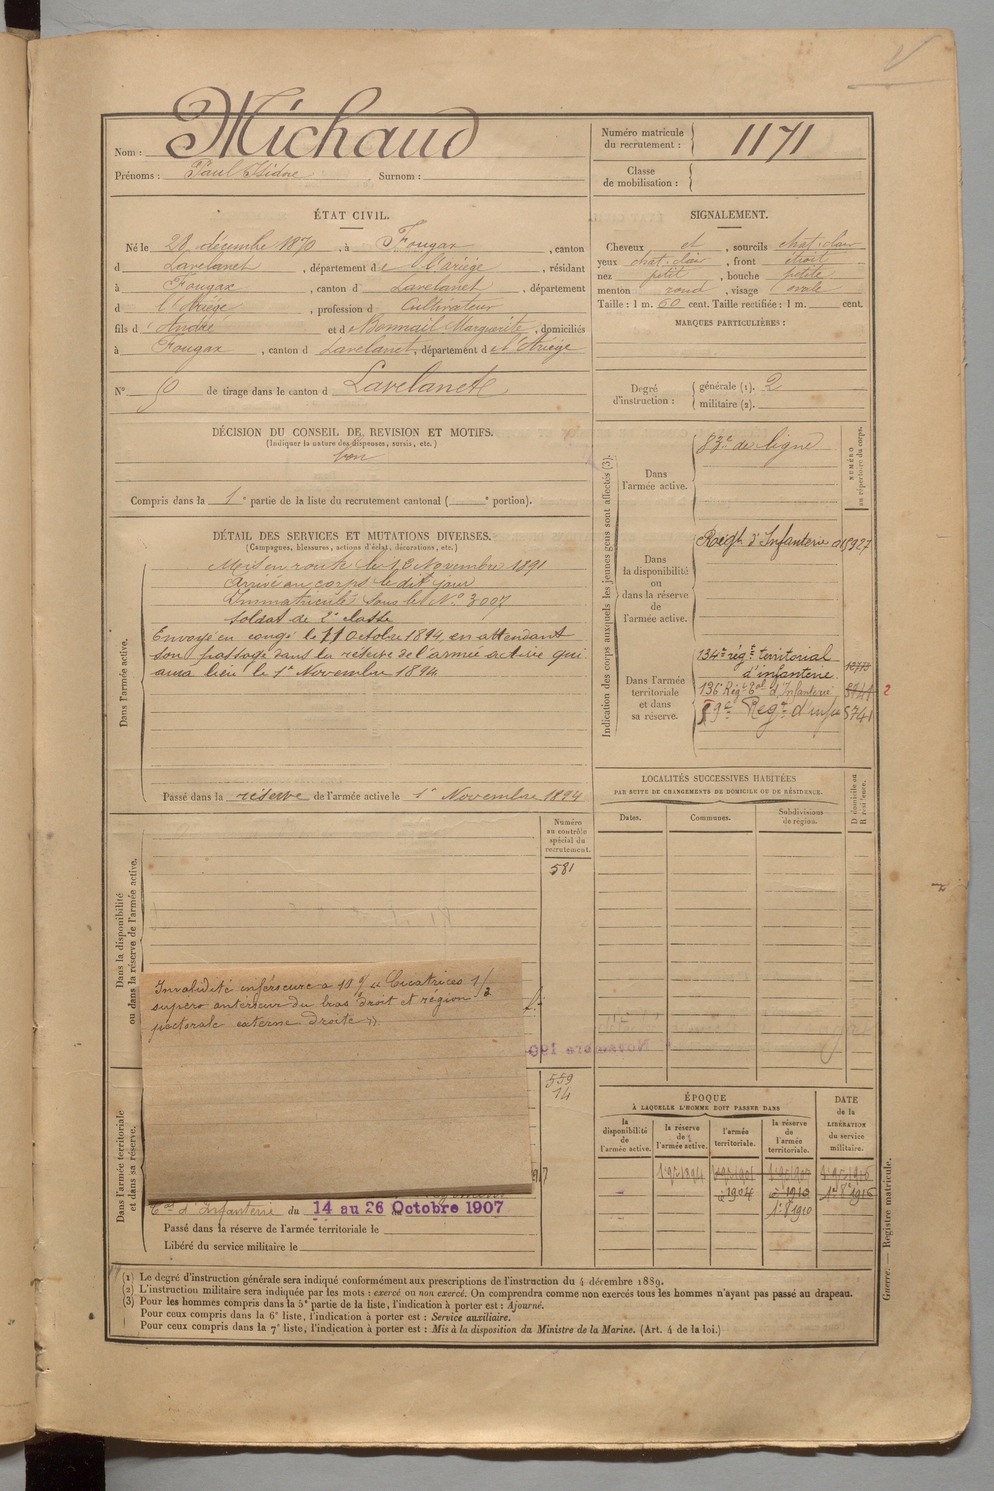 Nom : Michaud
Prénoms : Paul Isidore Surnom :
Numéro matricule du recrutement : 1171
Classe de mobilisation :
ÉTAT CIVIL.
Né le 28 décembre 1870, à Fougax, canton
d Lavelanet, département de l'Ariège, résidant
à Fougax, canton d Lavelanet, département
d l'Ariège, profession d Cultivateur
fils d André et de Bonnail Marguerite, domiciliés
à Fougax, canton d Lavelanet, département de l'Ariège
N° 50 de tirage dans le canton d Lavelanet
SIGNALEMENT.
Cheveux et, sourcils chat-clair
yeux chat-clair, front étroit
nez petit, bouche petite
menton rond, visage ovale
Taille : 1 m. 60 cent. Taille rectifiée : 1 m. cent.
MARQUES PARTICULIÈRES :
Degré d'instruction : générale (1). 2
militaire (2).
DÉCISION DU CONSEIL DE REVISION ET MOTIFS.
(Indiquer la nature des dispenses, sursis, etc.)
bon
Compris dans la 1e partie de la liste du recrutement cantonal ( e portion).
DÉTAIL DES SERVICES ET MUTATIONS DIVERSES.
(Campagnes, blessures, actions d'éclat, décorations, etc.)
Dans l'armée active.
Mis en route le Novembre 1891
Arrivé au corps le dit jour
Immatriculé sous le N° 3007
soldat de 2e classe
Envoyé en congé le 11 Octobre 1894, en attendant
son passage dans la réserve de l'armée active qui
aura lieu le 1er Novembre 1894
Passé dans la réserve de l'armée active le 1er Novembre 1894
Indication des corps auxquels les jeunes gens sont affectés (3).
NUMÉRO au répertoire du corps.
Dans l'armée active.
83e de ligne
Dans la disponibilité ou dans la réserve de l'armée active.
Régt d'Infanterie 015327
Dans l'armée territoriale et dans sa réserve.
134e régt territorial
d'infanterie
136 Régt Tal d'Infanterie
2
59e Regt d'infie 5741
LOCALITÉS SUCCESSIVES HABITÉES
PAR SUITE DE CHANGEMENTS DE DOMICILE OU DE RÉSIDENCE.
Dates. Communes. Subdivisions de région. D domicile ou R résidence.
Dans la disponibilité ou dans la réserve de l'armée active.
Numéro au contrôle spécial du recrutement.
581
Invalidité inférieure à 10 % Cicatrices 1/3
supero antérieur du bras droit et région
pectorale externe droite
Dans l'armée territoriale et dans sa réserve.
559
14
Tal d'Infanterie du 14 au 26 Octobre 1907
Passé dans la réserve de l'armée territoriale le
Libéré du service militaire le
ÉPOQUE
À LAQUELLE L'HOMME DOIT PASSER DANS
la disponibilité de l'armée active. la réserve de l'armée active. l'armée territoriale. la réserve de l'armée territoriale.
DATE de la LIBÉRATION du service militaire.
1904 1910
1er 8 1910
(1) Le degré d'instruction générale sera indiqué conformément aux prescriptions de l'instruction du 4 décembre 1889.
(2) L'instruction militaire sera indiquée par les mots : exercé ou non exercé. On comprendra comme non exercés tous les hommes n'ayant pas passé au drapeau.
(3) Pour les hommes compris dans la 5e partie de la liste, l'indication à porter est : Ajourné.
Pour ceux compris dans la 6e liste, l'indication à porter est : Service auxiliaire.
Pour ceux compris dans la 7e liste, l'indication à porter est : Mis à la disposition du Ministre de la Marine. (Art. 4 de la loi.)
Guerre. — Registre matricule.